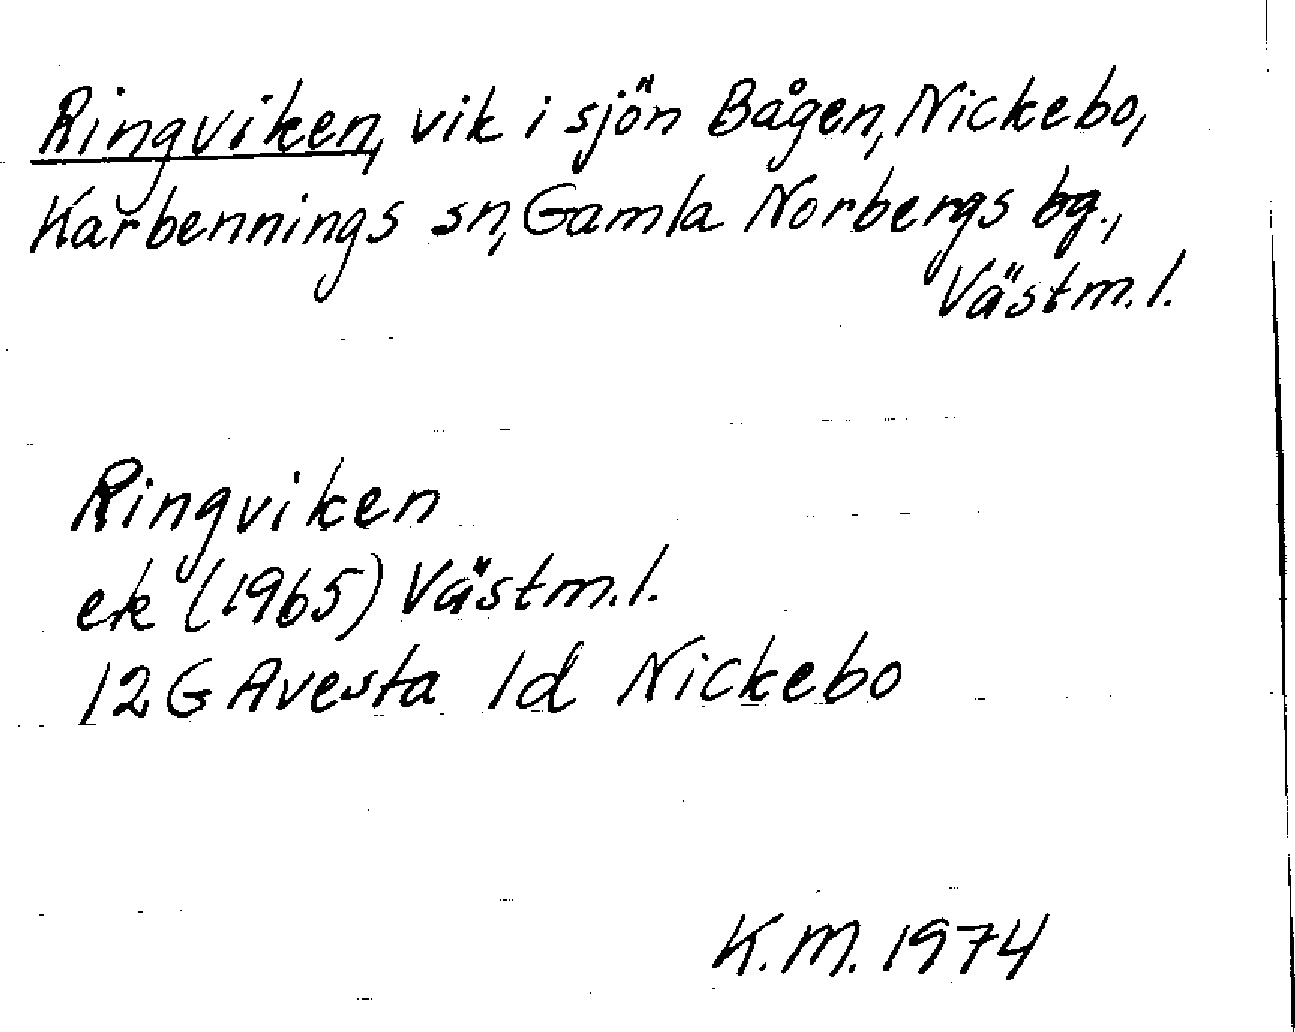 Ringviken, vik i sjön Bågen, Nickebo,
Karbennings sn, Gamla Norbergs bg.,
Västm.l.
Ringviken
ek (1965) Västm.l.
12G Avesta 1d Nickebo
K.M. 1974